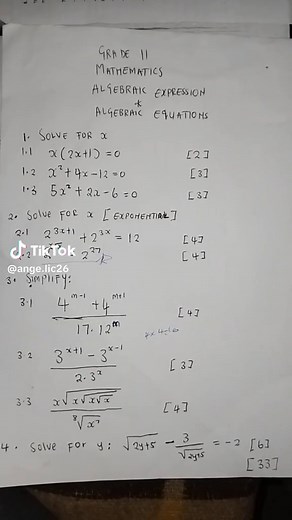 GRADE 11
MATHEMATICS
ALGEBRAIC EXPRESSION
+
ALGEBRAIC EQUATIONS
1. SOLVE FOR x
1.1 x(2x+1)=0 [2]
1.2 x²+4x-12=0 [3]
1.3 5x²+2x-6=0 [3]
2. SOLVE FOR x [EXPONENTIAL]
2.1 2^(3x+1) + 2^(3x) = 12 [4]
TikTok
2^27 [4]
@ange.lic26
3. SIMPLIFY:
3.1 (4^(m-1) + 4^(m+1)) / (17.12^m) [4]
3.2 (3^(x+1) - 3^(x-1)) / (2.3^x) [3]
3.3 x√(x√(x√x)) / ⁸√x⁷ [4]
4. Solve for y: √(2y+5) - 3/√(2y+5) = -2 [6]
[33]